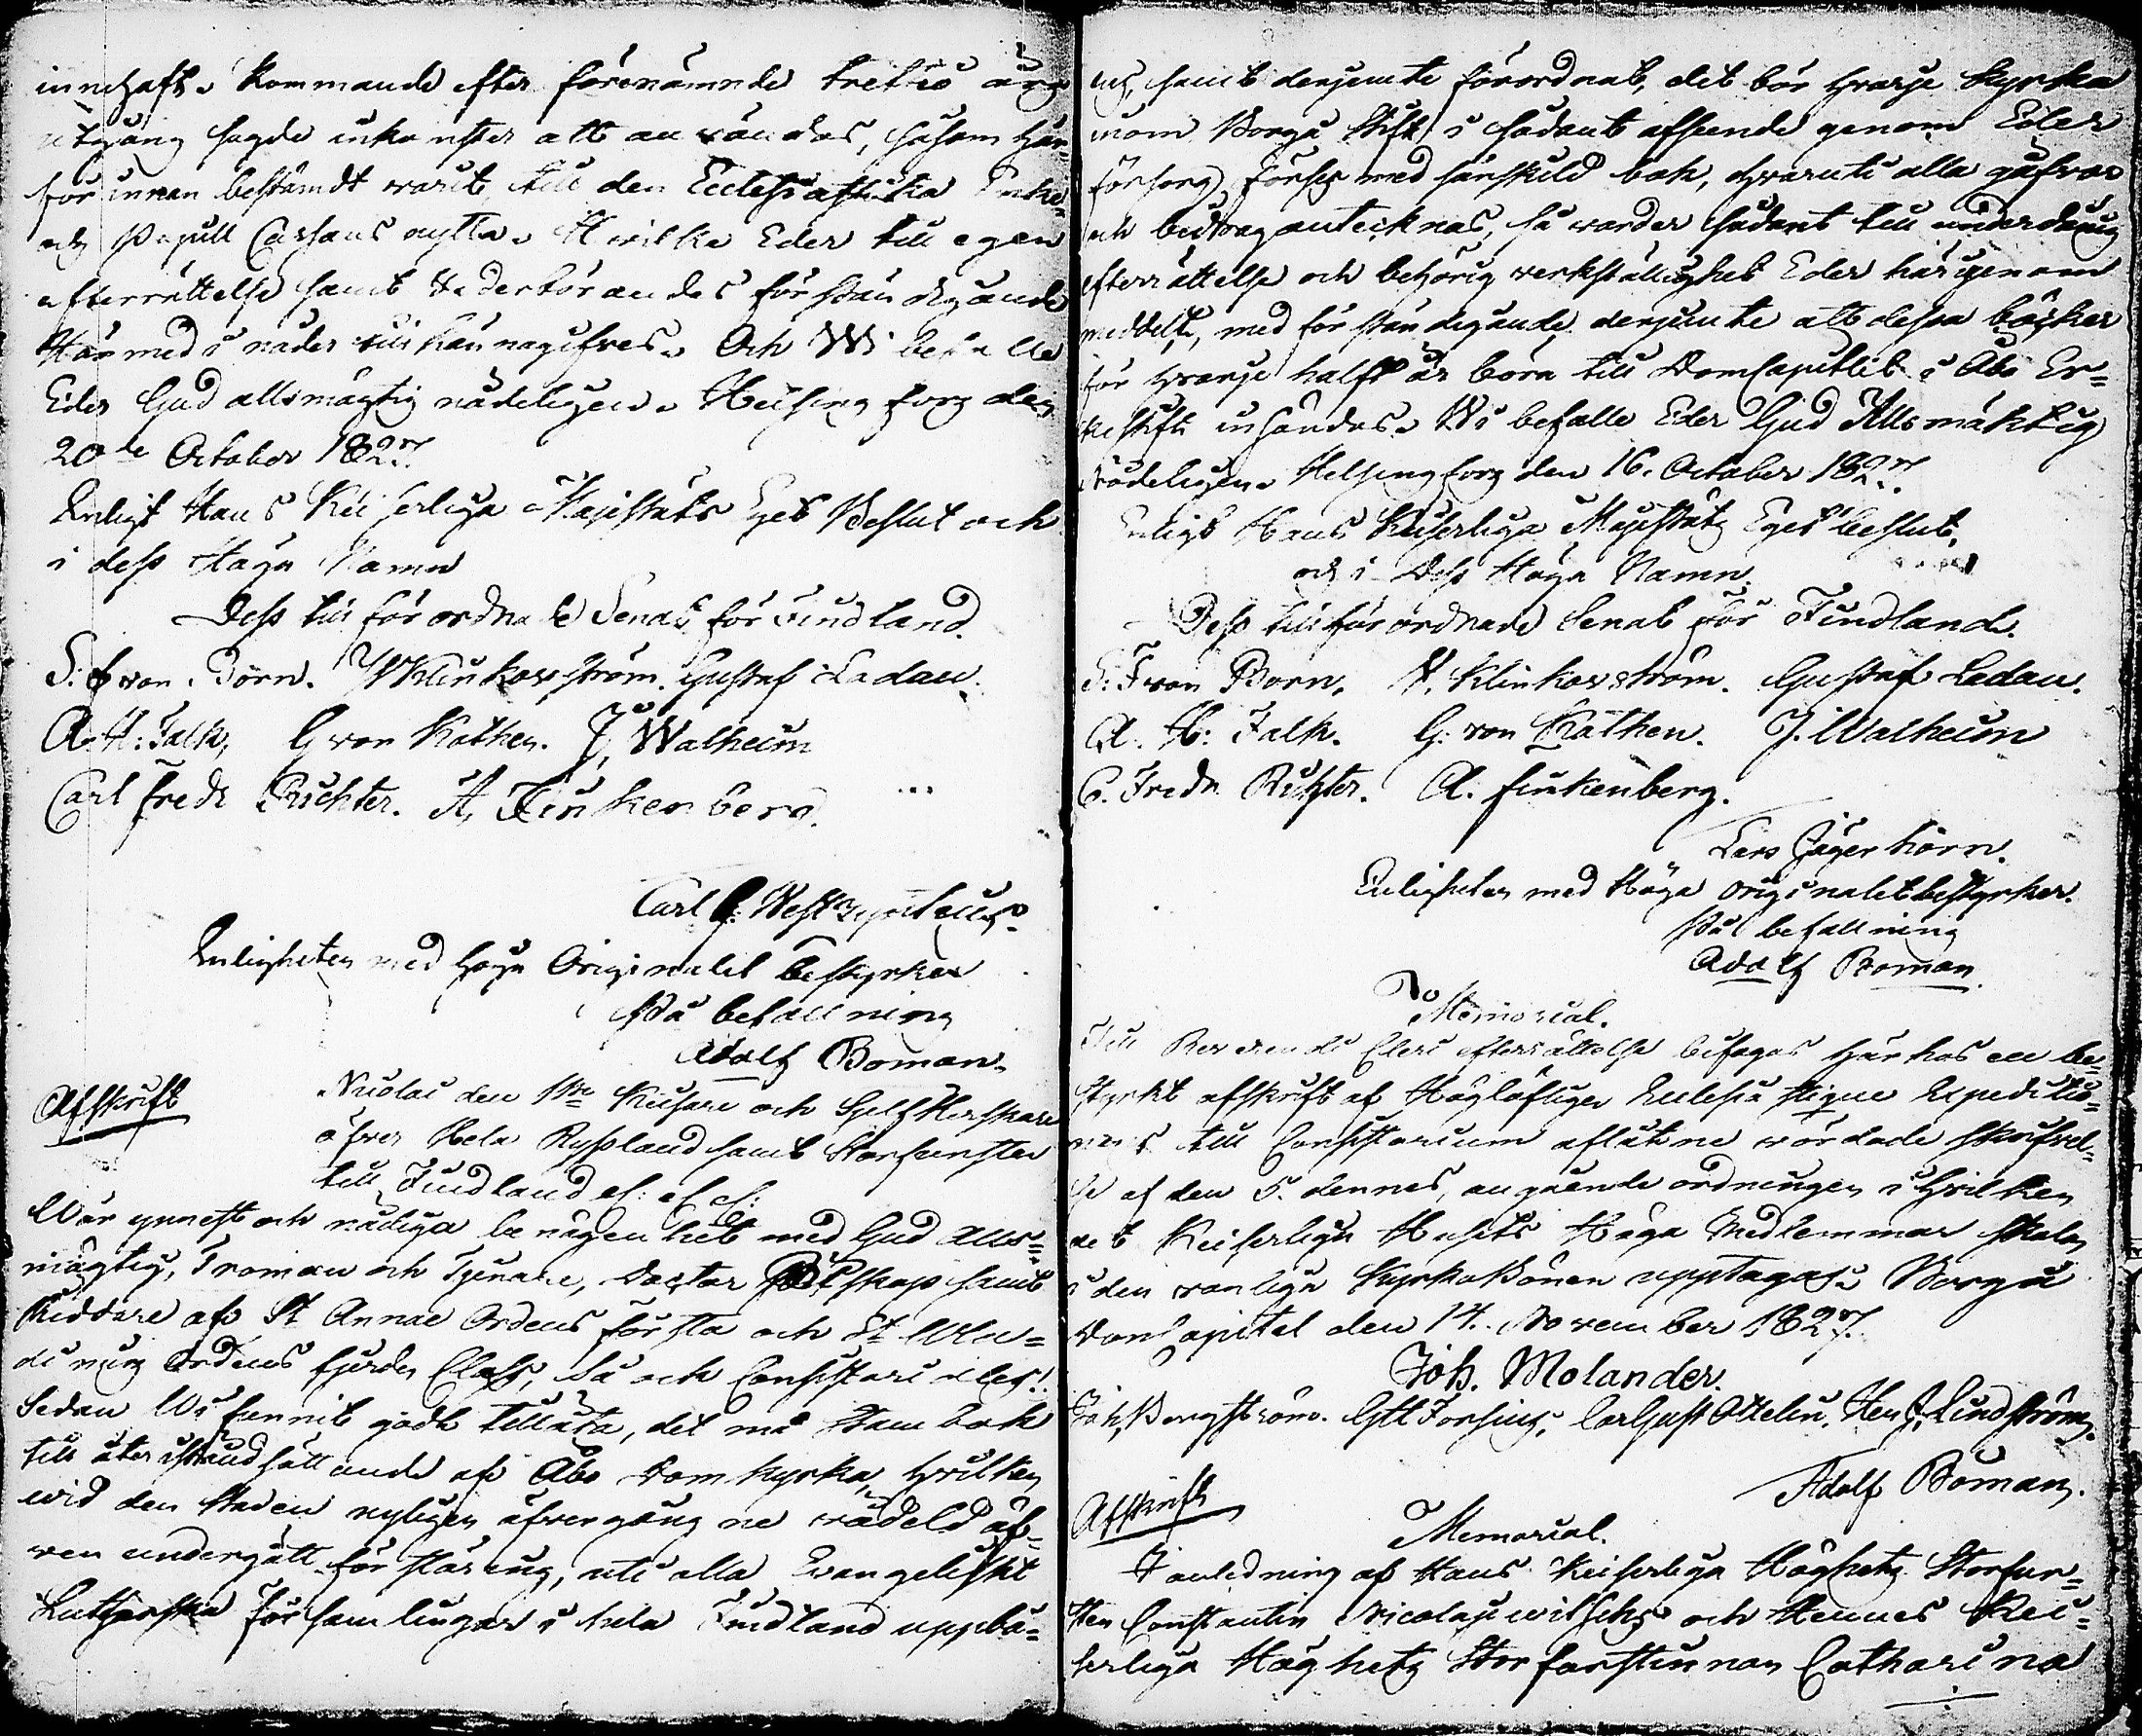 innehaft. Kommande efter förenämnde trettio års
utgång sagde inkomster att användas, såsom här
förinnan bestämdt warit, till den Ecclesiastika Enke
och Pupill Cassans nytta. Hwilket Eder till egen
efterrättelse samt vederbörandes förständigande
Härmed i nåder tillkännagifves. Och Wi befalle
Eder Gud allsmägtig nådeligen. Helsingfors den
20de October 1827.
Enligt Hans Keiserliga Majestäts Eget Beslut och
i dess Höga Namn
Dess tillförordnade Senat för Findland.
S. F. von Born. W Klinkowström. Gustaf Ladau.
A. H: Falck, G von Kothen. J, Walheim
Carl Fredr Richter. A, Finkenberg.
Carl G:
Enligheten med höga Originalet bestyrker
På befallning
Adolf Boman.
Afskrift
Nicolai den 1ste Keisare och Sjelfherskare
öfver Hela Ryssland samt Storfurste
till Findland &c: &c &c:
Wår ynnest och nådiga benägenhet med Gud alls=
mägtig, Troman och Tjenare, Doctor Biskop samt
Riddare af St Annae Ordens första och St Wla=
dimirs Ordens fjerde Class, så och Consistoriales!
Sedan Wi funnit godt tillåta, det må Stambok
till återiståndsättande af Åbo Domkyrka, hvilken
wid den Staden nyligen öfvergångne vådeld äf-
ven undergått förstöring, uti alla Evangeliskt
Lutherska församlingar i hela Findland uppbä=
as, samt derjemte förordnat, det bör hvarje Kyrka
inom Borgå Stift i sådant afseende genom Eder
försorg, förses med särskild bok, hvaruti alla gåfvor
och bidrag antecknas, så warder sådant till underdånig
efterrättelse och behörig verkställighet Eder härigenom
meddelt, med förständigande derjemte att dessa böcker
för hvarje halft år böra till Domcapitlet i Åbo Er=
kestift insändas. Wi befalle Eder Gud Allsmäktig
Nådeligen. Helsingfors den 16. October 1827.
Enligt Hans Keiserliga Majestäts Eget beslut,
och i Dess Höga Namn.
Dess tillförordnade Senat för Findland.
S: F von Born. W. Klinkowström. Gustaf Ladau.
A. H: Falk. G: von Kothen. J. Walheim
C. Fredr Richter. A. Finkenberg.
Lars Jägerhorn.
Enligheten med Höga originalet bestyrker.
På befallning
Adolf Boman.
Memorial.
Till Reverendi Cleri efterrättelse bifogas härhos en be=
styrkt afskrift af Höglöflige Ecclesiastique Expeditio=
nens till Consistorium aflåtne wördade skrifvel=
se af den 5. dennes, angående ordningen i hvilken
det Keiserliga Husets Höga Medlemmar skola
i den vanliga Kyrkobönen upptagas. Borgå
DomCapitel den 14. November 1827.
Joh. Molander.
Joh, Borgström. Forsius, Carl Gust Ottelin, Lindström.
Adolf Boman.
Afskrift
Memorial.
I anledning af Hans Keiserliga Höghets Storfur=
sten Constantin Nicolajewitschs och Hennes Kei=
serliga Höghets Storfurstinnan Catharina